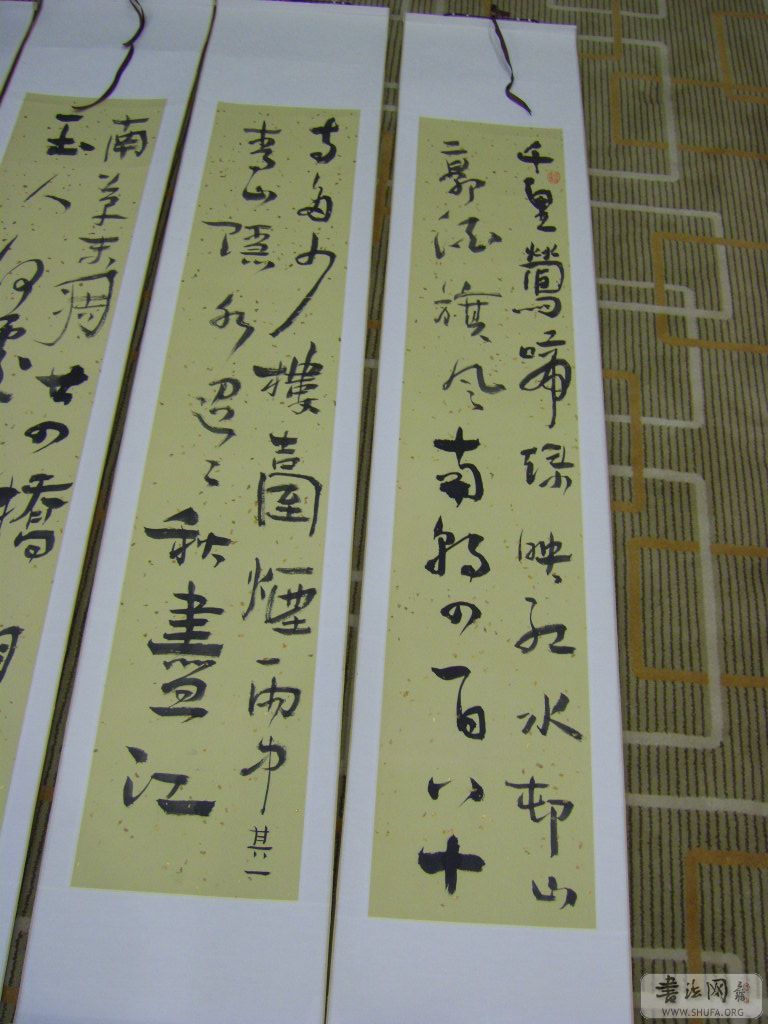 千里鶯啼緑映紅水邨山
郭酒旗風南朝四百八十
寺多少樓臺煙雨中其一
青山隱水迢〻秋盡江
南草未凋廿四橋
玉人何處
書法网
WWW.SHUFA.ORG